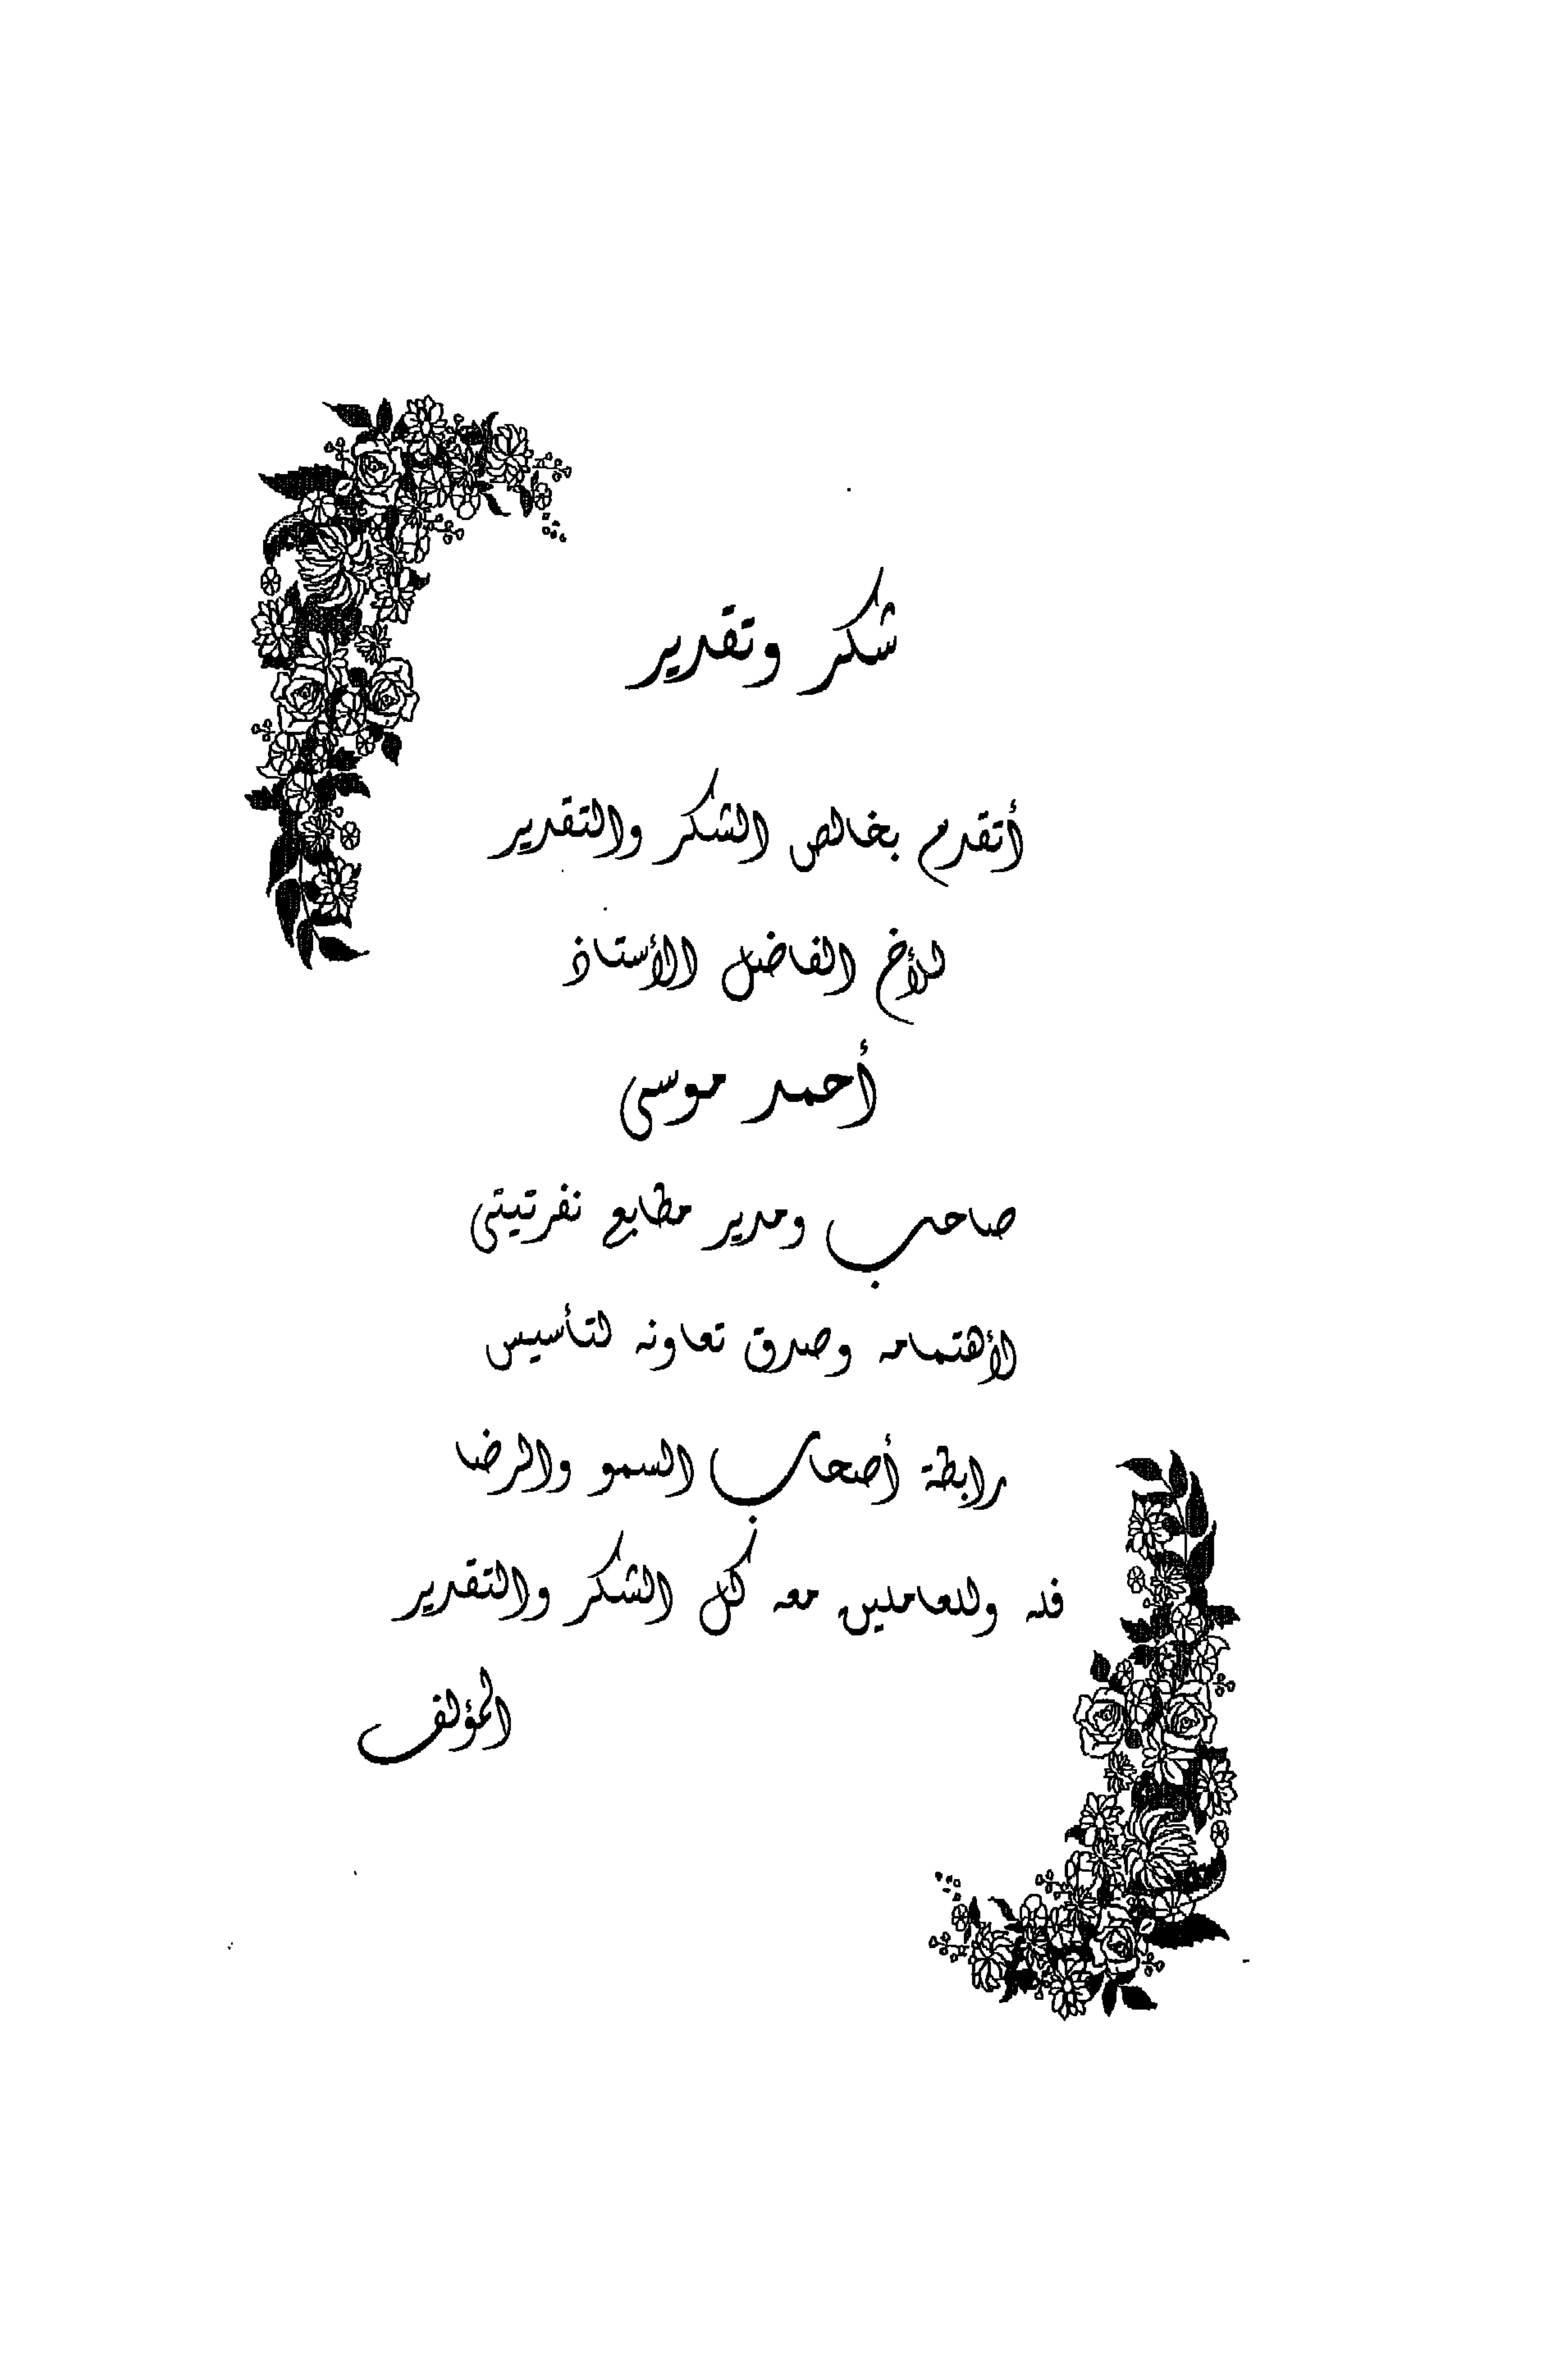 شكر وتقدير
أتقدم بخالص الشكر والتقدير
للأخ الفاضل الأستاذ
أحمد موسى
صاحب ومدير مطابع نفرتيتى
لأهتمامه وصدق تعاونه لتأسيس
رابطة أصحاب السمو والرضا
فله وللعاملين معه كل الشكر والتقدير
المؤلف